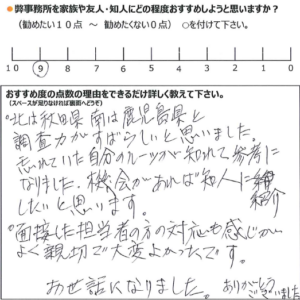 ●弊事務所を家族や友人・知人にどの程度おすすめしようと思いますか？
（勧めたい１０点 ～ 勧めたくない０点） ○を付けて下さい。
10 9 8 7 6 5 4 3 2 1 0
おすすめ度の点数の理由をできるだけ詳しく教えて下さい。
（スペースが足りなければ裏面へどうぞ）
・北は秋田県 南は鹿児島県と
調査力がすばらしいと思いました。
忘れていた自分のルーツが知れて参考に
なりました。機会があれば知人に紹介
したいと思います。
・面接した担当者の方の対応も感じが
よく親切で大変よかったです。
お世話になりました。ありがとうございました